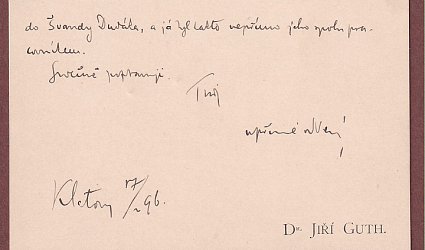 do Švandy Dudáka, a já byl takto nepřímo jeho spolupra-
covníkem.
Srdečně pozdravuji.
Tvůj
upřímně oddaný
Klatovy 17/2 96.
Dr. JIŘÍ GUTH.